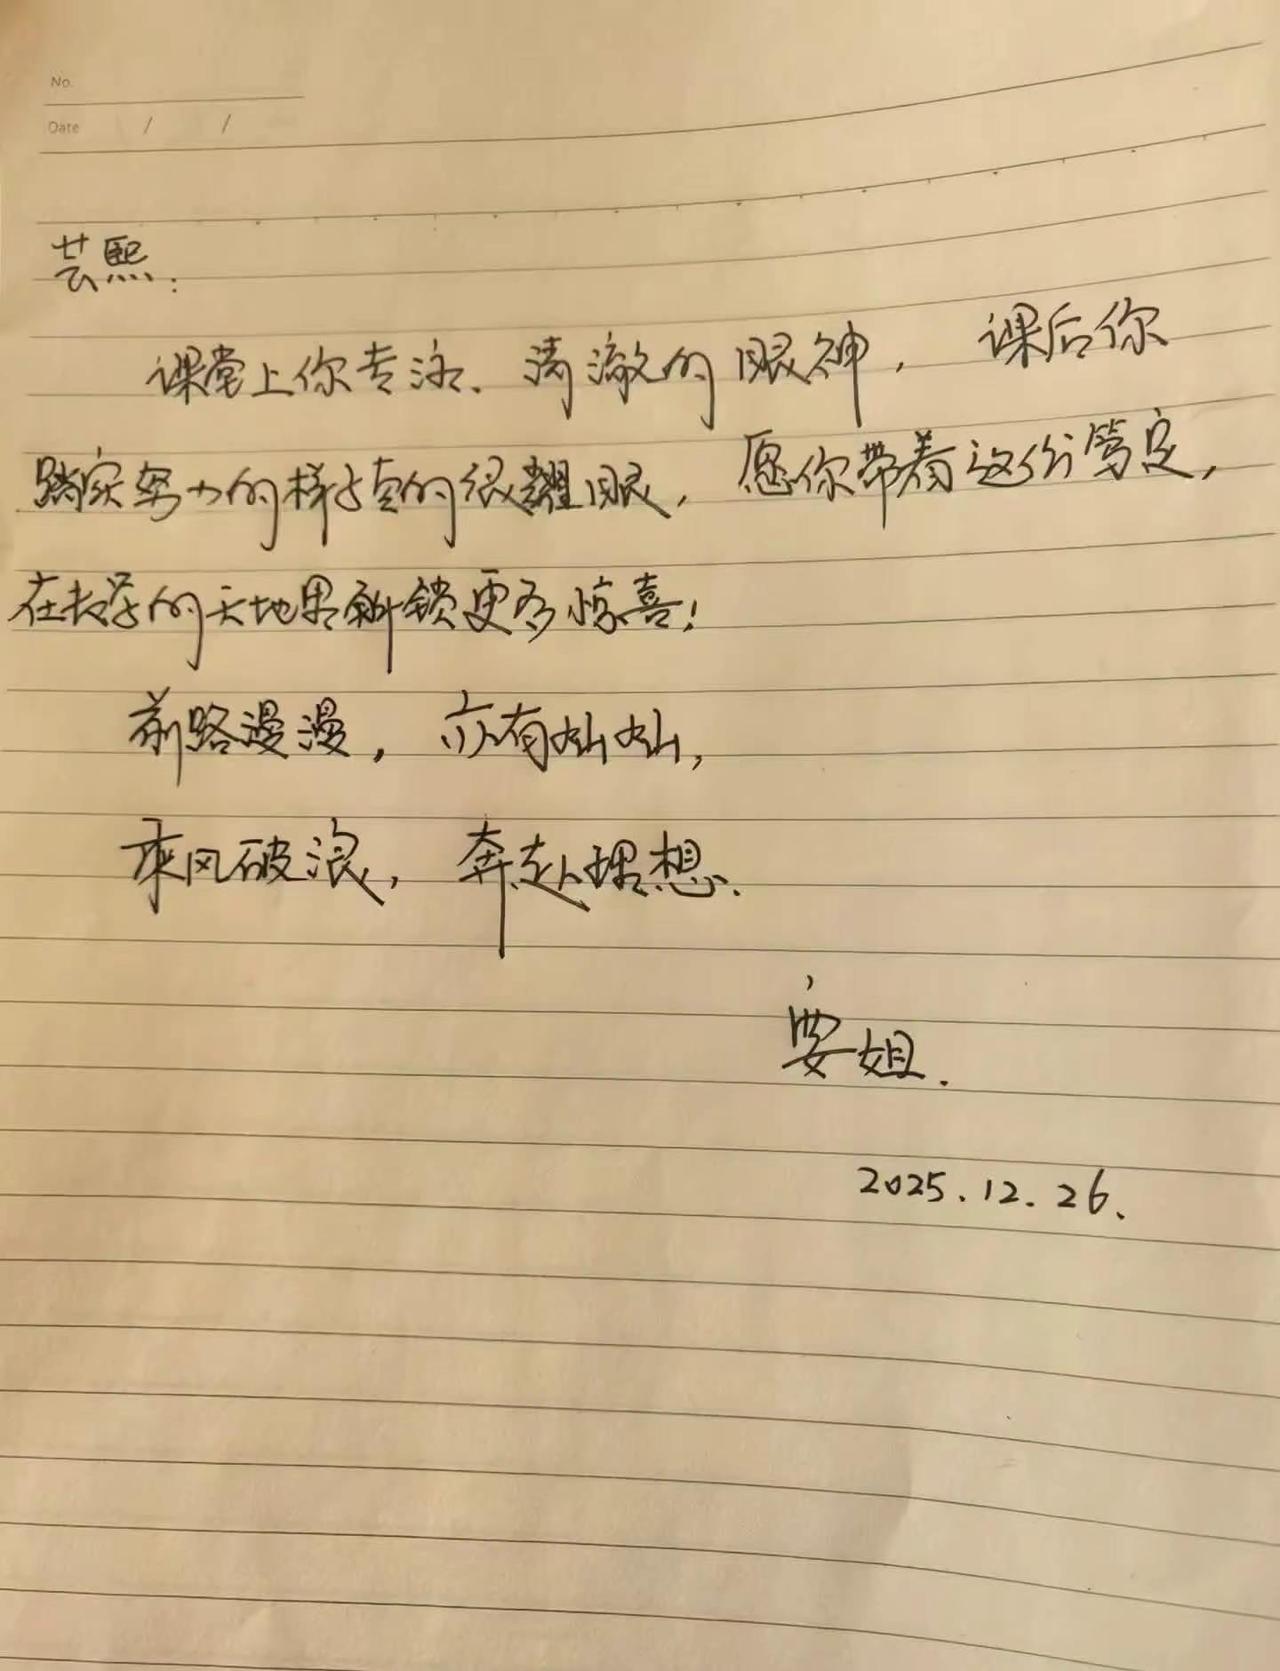 No.
Date / /
芸熙:
课堂上你专注、清澈的眼神，课后你
踏实努力的样子真的很耀眼，愿你带着这份笃定，
在数学的天地里解锁更多惊喜!
前路漫漫，亦有灿灿，
乘风破浪，奔赴理想.
姐.
2025.12.26.